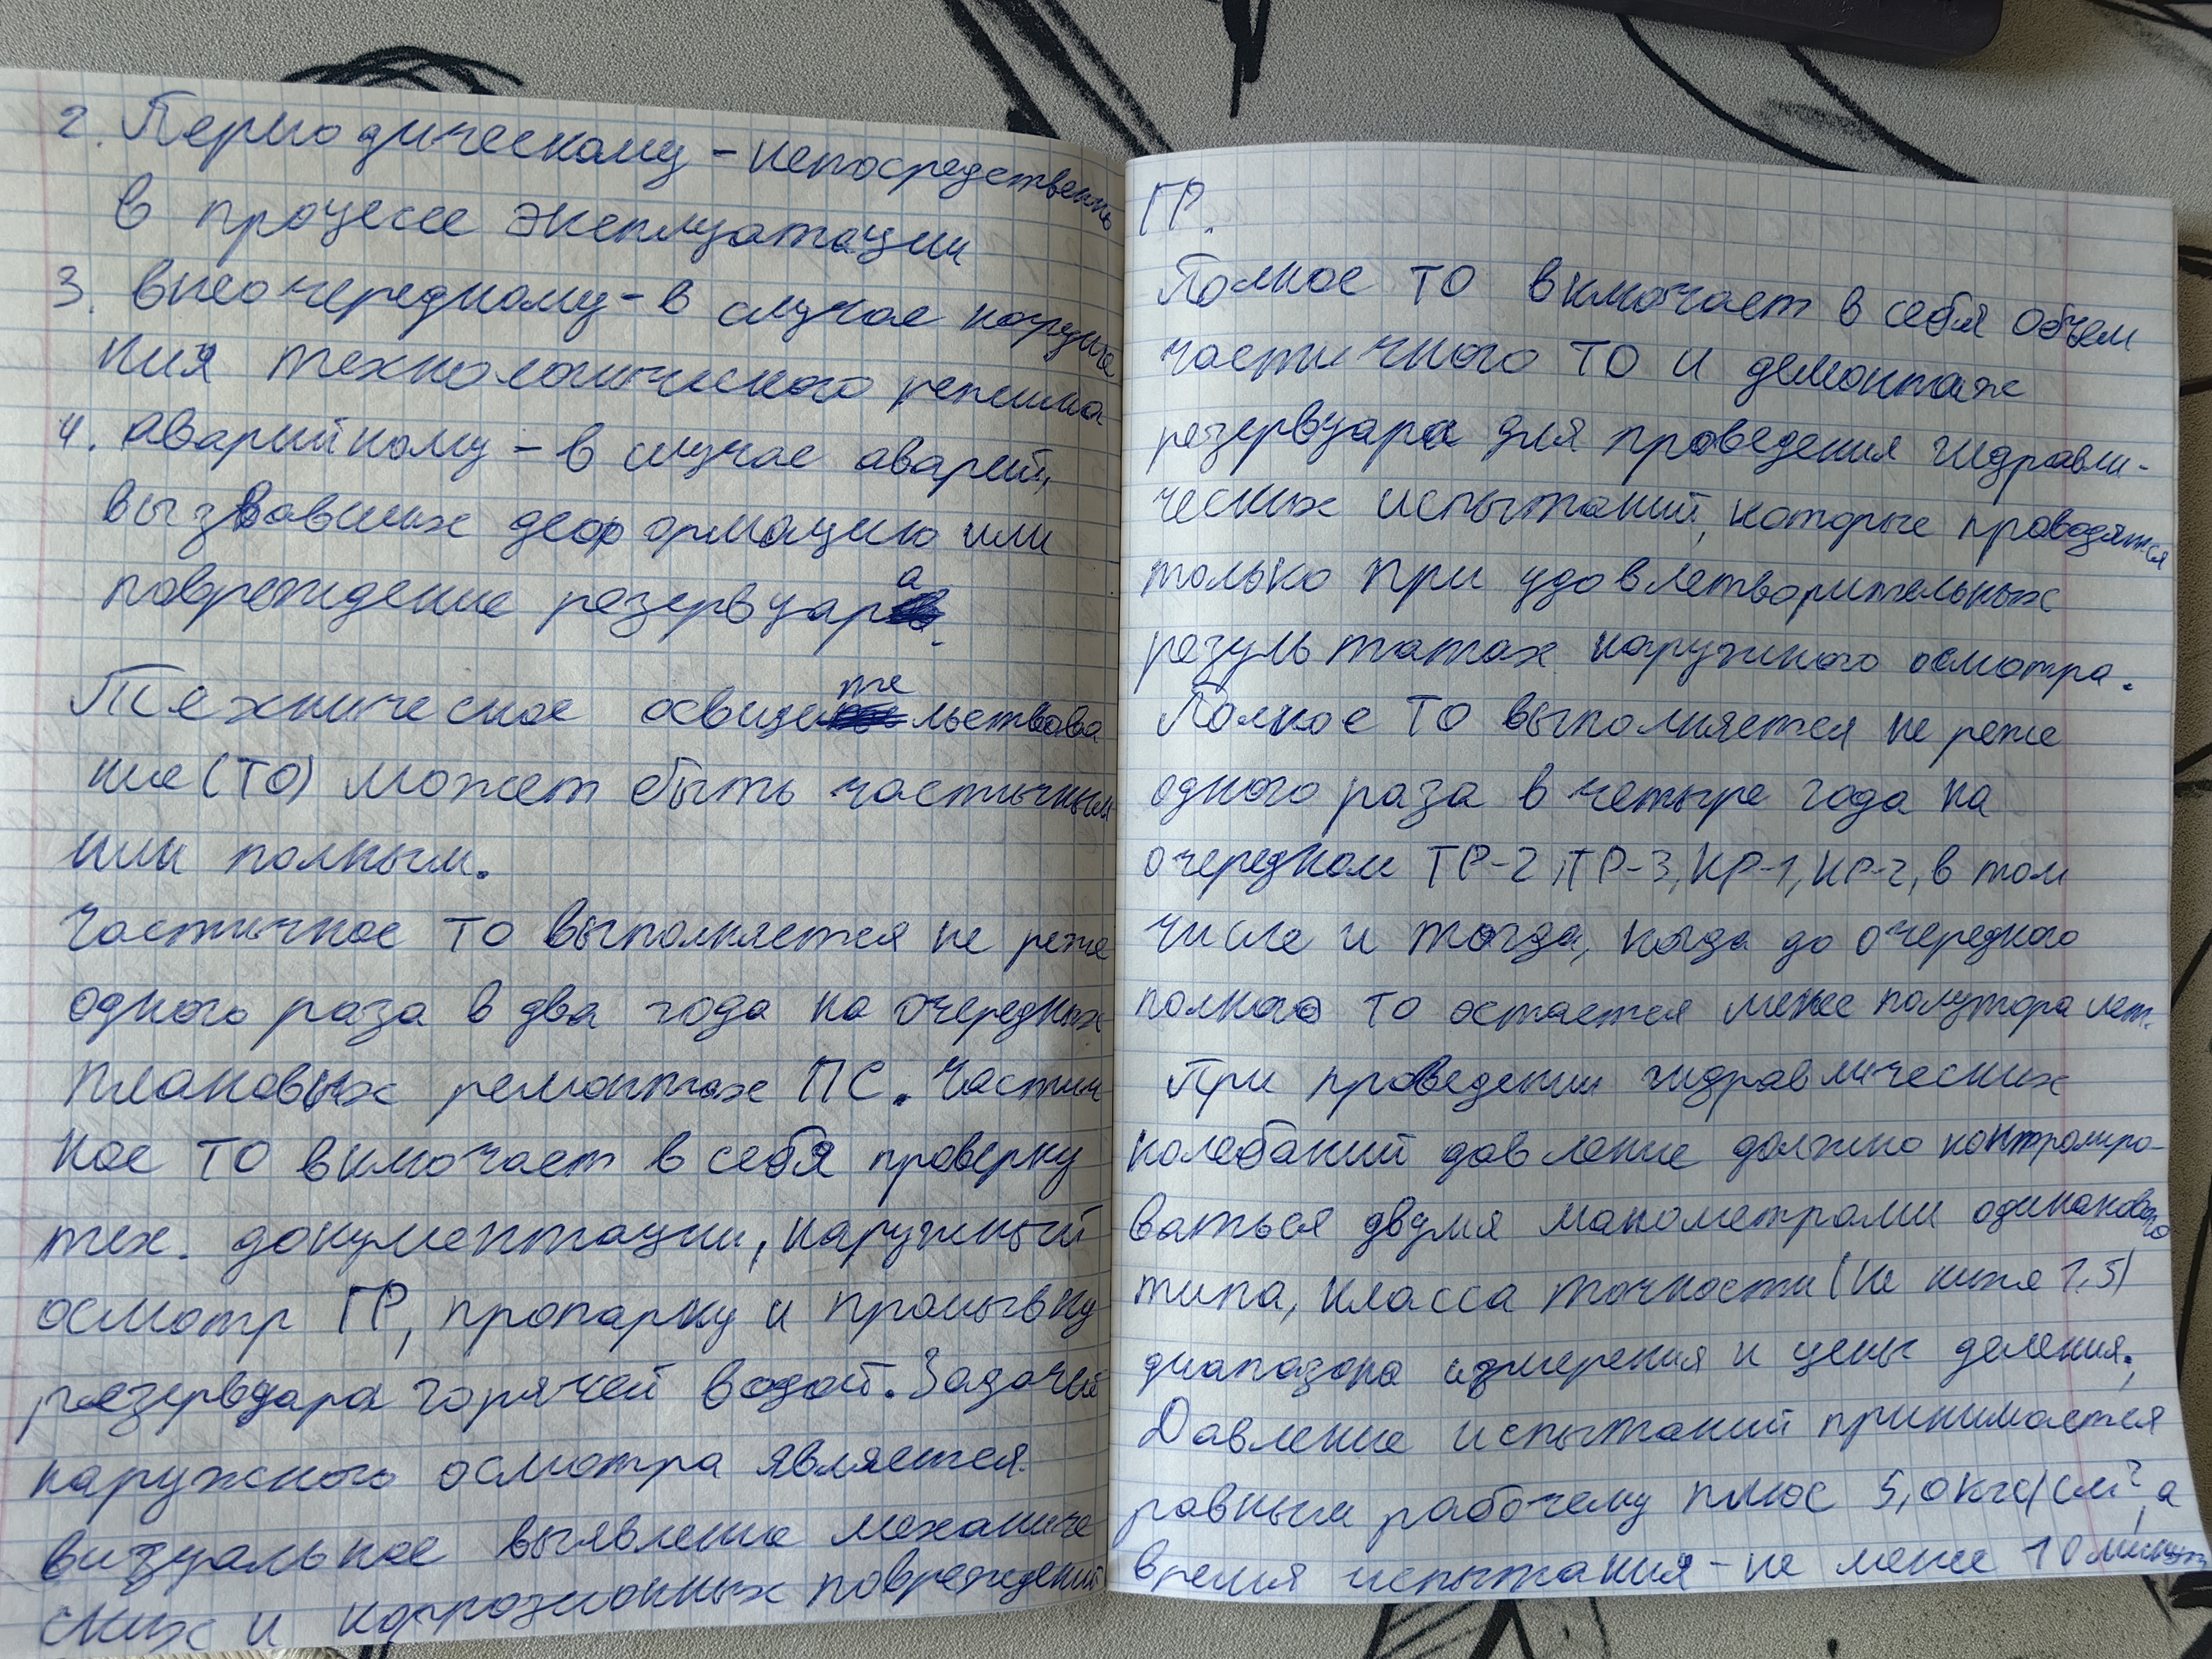 2. Периодическому - непосредственно
в процессе эксплуатации
3. внеочередному - в случае наруше
ния технологического режима
4. аварийному - в случае аварий,
вызвавших деформацию или
повреждение резервуара.
Техническое освидетельствова
ние (ТО) может быть частичным
или полным.
Частичное ТО выполняется не реже
одного раза в два года на очередных
плановых ремонтах ПС. Частич
ное ТО включает в себя проверку
тех. документации, наружный
осмотр ГР, пропарку и промывку
резервуара горячей водой. Задачей
наружного осмотра является
визуальное выявление механиче
ских и коррозионных повреждений
ГР.
Полное ТО включает в себя объем
частичного ТО и демонтаж
резервуара для проведения гидравли-
ческих испытаний, которые проводятся
только при удовлетворительных
результатах наружного осмотра.
Полное ТО выполняется не реже
одного раза в четыре года на
очередном ТР-2, ТР-3, КР-1, КР-2, в том
числе и тогда, когда до очередного
полного ТО остается менее полутора лет.
При проведении гидравлических
колебаний давление должно контролиро-
ваться двумя манометрами одинакового
типа, класса точности (не ниже 1,5)
диапазона измерения и цены деления.
Давление испытаний принимается
равным рабочему плюс 5,0 кгс/см², а
время испытания - не менее 10 минут